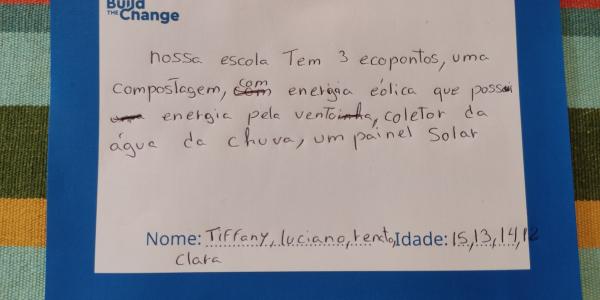 Build
THE Change
nossa escola Tem 3 ecopontos, uma
compostagem, com energia eólica que possui
energia pela ventoinha, coletor da
água da chuva, um painel Solar
Nome: Tiffany, luciano, renato, Idade: 15, 13, 14, 12
Clara